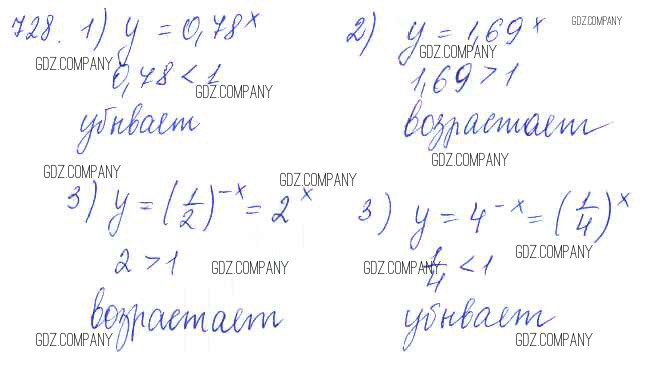 728. 1) y = 0,78^x
0,78 < 1
убывает
2) y = 1,69^x
1,69 > 1
возрастает
3) y = (1/2)^-x = 2^x
2 > 1
возрастает
3) y = 4^-x = (1/4)^x
1/4 < 1
убывает
GDZ.COMPANY
GDZ.COMPANY
GDZ.COMPANY
GDZ.COMPANY
GDZ.COMPANY
GDZ.COMPANY
GDZ.COMPANY
GDZ.COMPANY
GDZ.COMPANY
GDZ.COMPANY
GDZ.COMPANY
GDZ.COMPANY
GDZ.COMPANY